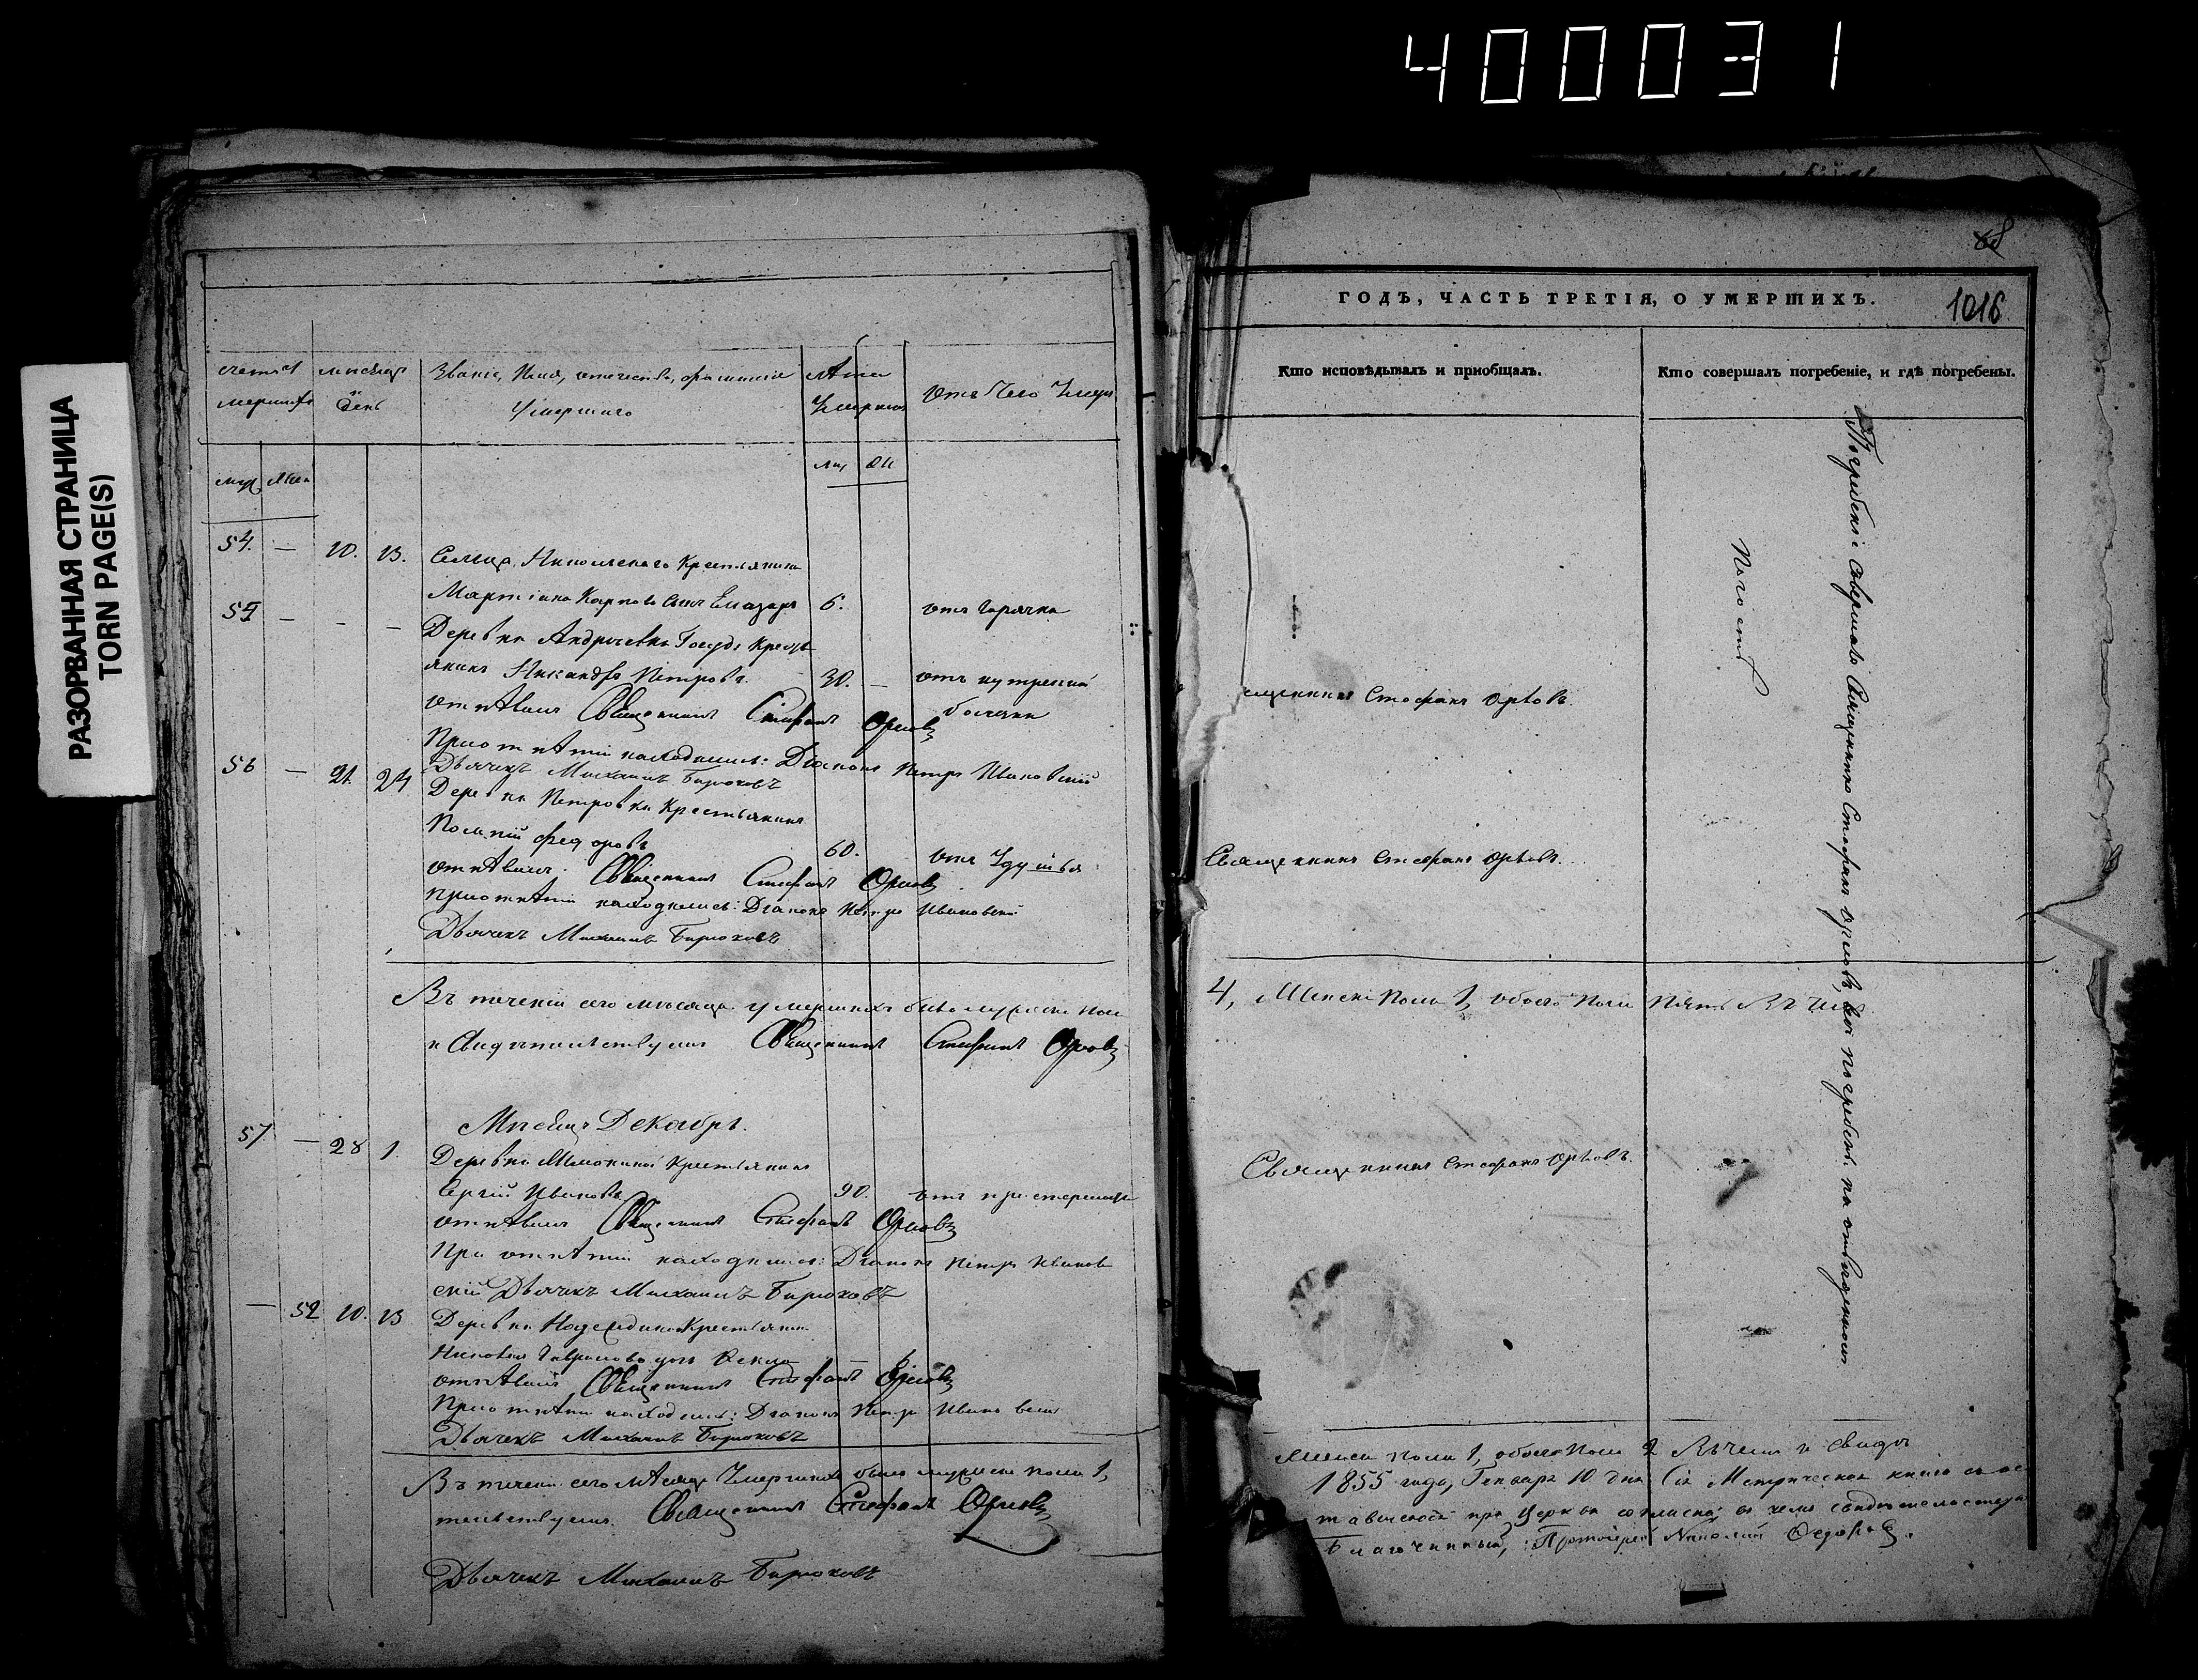 400031
РАЗОРВАННАЯ СТРАНИЦА
TORN PAGE(S)
день
Званіе, Имя, отчество, фамилія
Умершаго
лѣта
Умершаго
отъ чего Умеръ
54. — 10. 13. Сельца Никольскаго Крестьянина
Мартіана Карпова сынъ Елизаръ 6. отъ горячки
55 — — — Деревни Андреевки Госуд: Кресть
янинъ Никандръ Петровъ. 30. — отъ нутренной
болезни
отпѣвалъ Священникъ Стефанъ Орловъ
При отпѣтіи находились: Діаконъ Петръ Ивановскій
Дьячекъ Михаилъ Бирюковъ
56 — 21. 24 Деревни Петровки Крестьянинъ
Федоровъ 60. отъ Удушья
отпѣвалъ Священникъ Стефанъ Орловъ
При отпѣтіи находились: Діаконъ Петръ Ивановскій
Дьячекъ Михаилъ Бирюковъ
Въ теченіи сего мѣсяца умершихъ было мужеска пола
и свидѣтельствуемъ Священникъ Стефанъ Орловъ
Мѣсяцъ Декабрь.
57 — 28 1. Деревни Крестьянинъ
Сергій Ивановъ 90. отъ престарелости
отпѣвалъ Священникъ Стефанъ Орловъ
При отпѣтіи находились: Діаконъ Петръ Иванов
скій Дьячекъ Михаилъ Бирюковъ
— 52 10. 13 Деревни Крестьянина
Гаврилова дочь Фекла
отпѣвалъ Священникъ Стефанъ Орловъ
При отпѣтіи находились: Діаконъ Петръ Ивановскій
Дьячекъ Михаилъ Бирюковъ
Въ теченіи сего мѣсяца Умершихъ было мужеска пола 1,
тельствуемъ. Священникъ Стефанъ Орловъ
Дьячекъ Михаилъ Бирюковъ
ГОДЪ, ЧАСТЬ ТРЕТІЯ, О УМЕРШИХЪ.
1016
Кто исповѣдывалъ и пріобщалъ.
Кто совершалъ погребеніе, и гдѣ погребены.
щенникъ Стефанъ Орловъ.
Священникъ Стефанъ Орловъ.
4, Женска Пола 1, обоего Пола Пять Въ чемъ
Священникъ Стефанъ Орловъ.
Погребеніе совершалъ Священникъ Стефанъ Орловъ, все погребены на отведенномъ
Погостѣ
Женска пола 1, обоего Пола 2 Въ чемъ и свидѣ
1855 года, Генваря 10 дня Сія Метрическая книга съ ос
тавленной при Церкви согласна, въ чемъ свидѣтельствую
Благочинный, Протоіерей Николай Федоровъ.